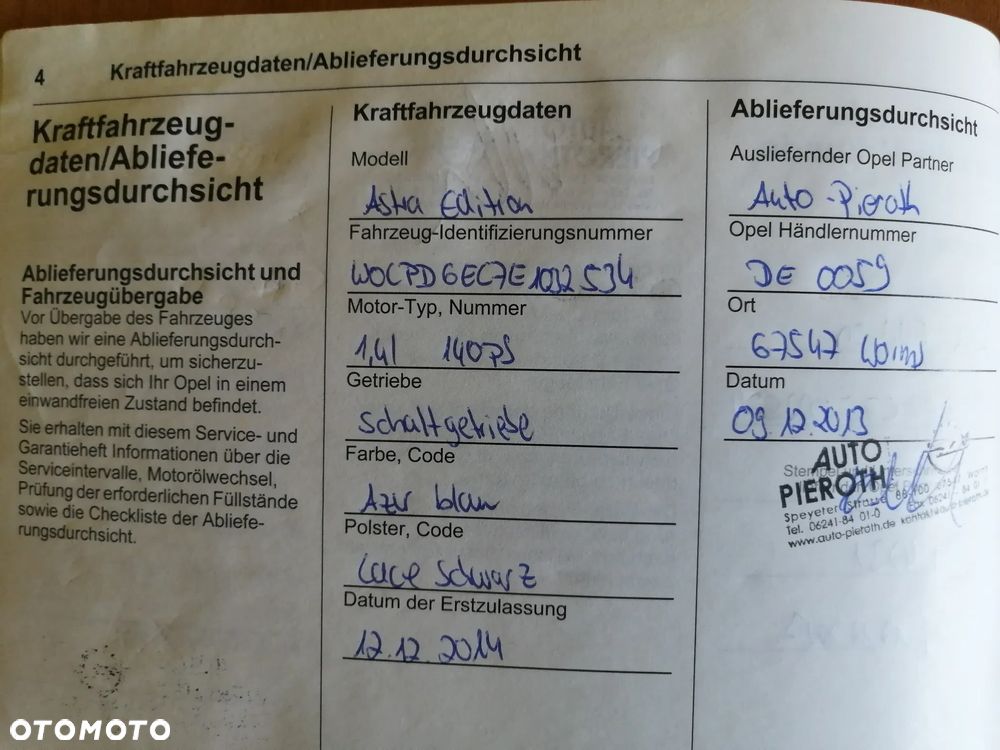 4
Kraftfahrzeugdaten/Ablieferungsdurchsicht
Kraftfahrzeug-
daten/Abliefe-
rungsdurchsicht
Ablieferungsdurchsicht und
Fahrzeugübergabe
Vor Übergabe des Fahrzeuges
haben wir eine Ablieferungsdurch-
sicht durchgeführt, um sicherzu-
stellen, dass sich Ihr Opel in einem
einwandfreien Zustand befindet.
Sie erhalten mit diesem Service- und
Garantieheft Informationen über die
Serviceintervalle, Motorölwechsel,
Prüfung der erforderlichen Füllstände
sowie die Checkliste der Abliefe-
rungsdurchsicht.
Kraftfahrzeugdaten
Modell
Astra Edition
Fahrzeug-Identifizierungsnummer
W0LPD6EC7E1092534
Motor-Typ, Nummer
1,4l 140PS
Getriebe
Schaltgetriebe
Farbe, Code
Azur blau
Polster, Code
Lace Schwarz
Datum der Erstzulassung
12.12.2014
Ablieferungsdurchsicht
Ausliefernder Opel Partner
Auto-Pieroth
Opel Händlernummer
DE 0059
Ort
67547 Worms
Datum
09.12.2013
AUTO
PIEROTH
Speyerer Strasse 88-100
Tel. 06241-84 01-0 Fax 06241-84 01
www.auto-pieroth.de kontakt@auto-pieroth.de
OTOMOTO